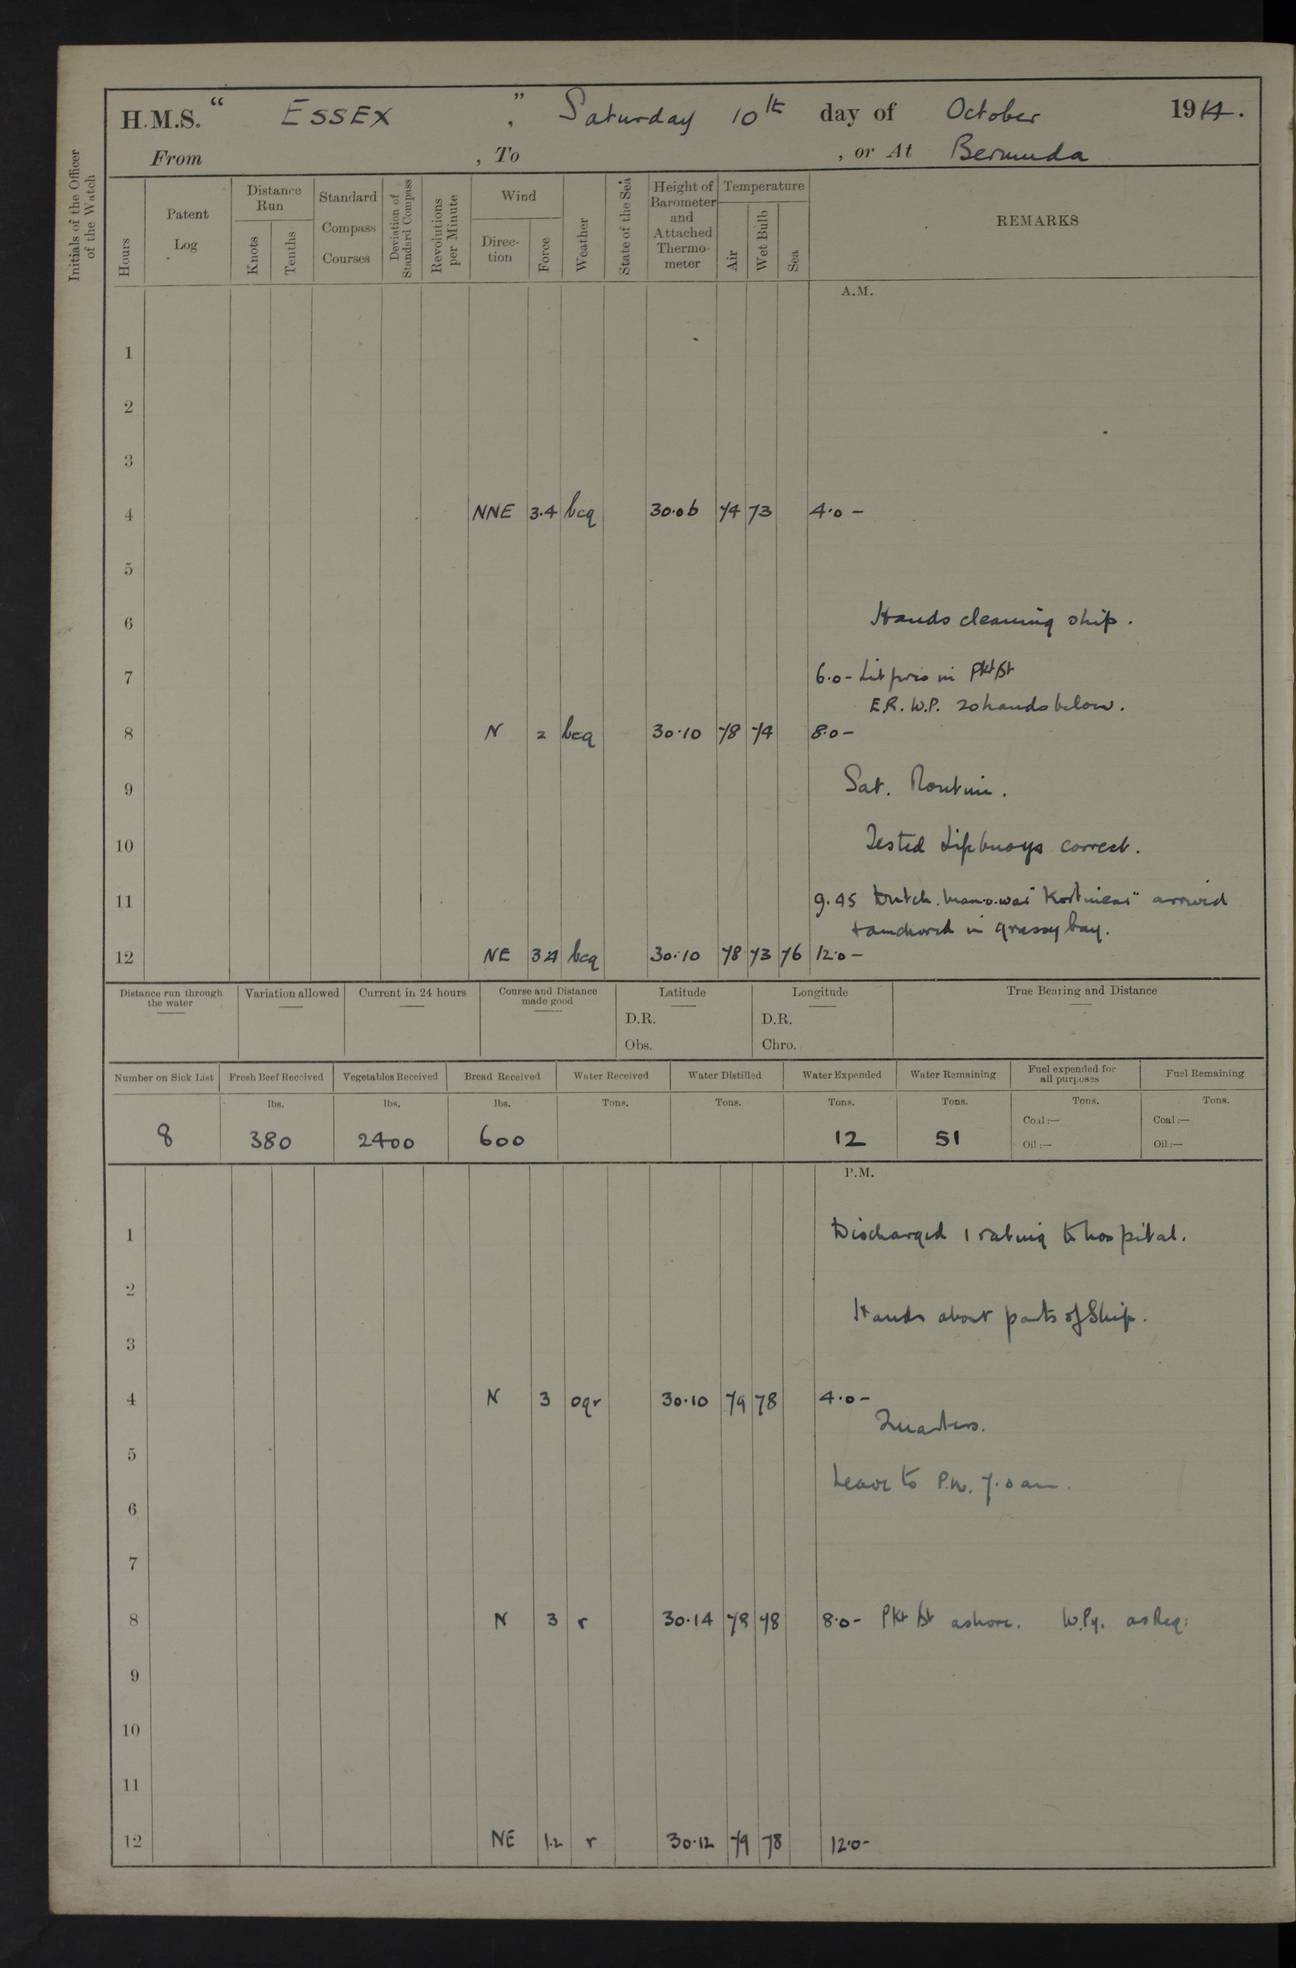 H.M.S. “ ESSEX ”, Saturday 10th day of October 1914.
From , To , or At Bermuda
Initials of the Officer of the Watch
Hours
Patent Log
Distance Run
Knots
Tenths
Standard Compass Courses
Deviation of Standard Compass
Revolutions per Minute
Wind
Direc-tion
Force
Weather
State of the Sea
Height of Barometer and Attached Thermo-meter
Temperature
Air
Wet Bulb
Sea
REMARKS
A.M.
1
2
3
4 NNE 3.4 bcq 30.06 74 73 4.0 –
5
6 Hands cleaning ship.
7 6.0 – Lit fires in Pkt Bt
E.R. W.P. 20 hands below.
8 N 2 bcq 30.10 78 74 8.0 –
9 Sat. Routine.
10 Tested Lifebuoys correct.
11 9.45 Dutch. Man.o.war "Kortenaer" arrived
+ anchored in grassy bay.
12 NE 3.4 bcq 30.10 78 73 76 12.0 –
Distance run through the water
Variation allowed
Current in 24 hours
Course and Distance made good
Latitude
D.R.
Obs.
Longitude
D.R.
Chro.
True Bearing and Distance
Number on Sick List
Fresh Beef Received
Vegetables Received
Bread Received
Water Received
Water Distilled
Water Expended
Water Remaining
Fuel expended for all purposes
Fuel Remaining
lbs. lbs. lbs. Tons. Tons. Tons. Tons. Tons. Tons.
Coal :— Coal :—
8 380 2400 600 12 51 Oil :— Oil :—
P.M.
1 Discharged 1 rating to hospital.
2
Hands about parts of Ship.
3
4 N 3 oqr 30.10 79 78 4.0 –
Quarters.
5
Leave to P.W. 7.0 am.
6
7
8 N 3 r 30.14 78 78 8.0 – Pkt Bt ashore. W.Py. as Req:
9
10
11
12 NE 1.2 r 30.12 79 78 12.0 –